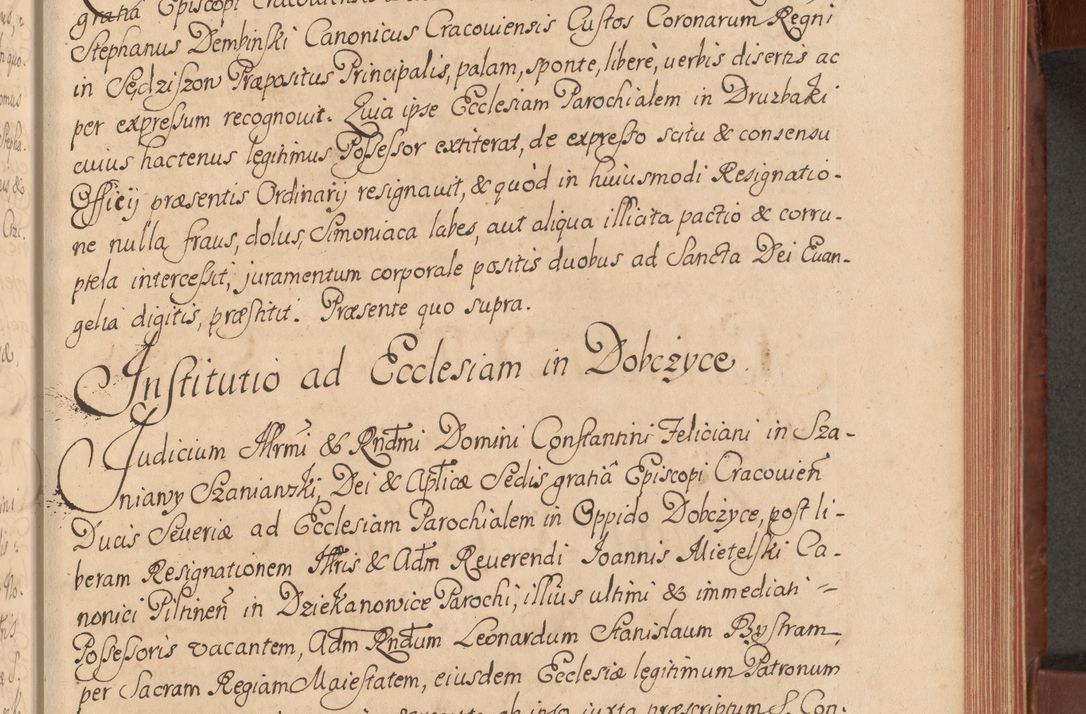 gratiâ Episcopi Cracouiensis
Stephanus Dembinſki Canonicus Cracouiensis Cuſtos Coronarum Regni
in Sędziſzon Præpositus Principalis, palam, sponte, liberè, uerbis disertis ac
per expreſsum recognouit. Quia ipse Ecclesiam Parochialem in Druzbaki
cuius hactenus legitimus Poſseſsor extiterat, de expreſso scitu & consensu
Officij præsentis Ordinarij resignauit, & quòd in huiusmodi Resignatio-
ne nulla fraus, dolus, Simoniaca labes, aut aliqua illicita pactio & corru-
ptela interceſsit, juramentum corporale positis duobus ad Sancta Dei Euan-
gelia digitis, præſtitit. Præsente quo supra.
Inſtitutio ad Ecclesiam in Dobczyce.
Judicium Illrmi & Rndmi Domini Conſtantini Feliciani in Sza-
niawy Szaniawski, Dei & Aplicæ Sedis gratiâ Episcopi Cracouien
Ducis Seueriæ ad Ecclesiam Parochialem in Oppido Dobczyce, poſt li-
beram Resignationem Illris & Adm Reuerendi Joannis Mietelſki Ca-
nonici Piltinen in Dziekanowice Parochi, illius ultimi & immediati
Poſseſsoris vacantem, Adm Rndum Leonardum Stanislaum Byſtram,
per Sacram Regiam Maieſtatem, eiusdem Ecclesiæ legitimum Patronum
ab ipso juxta præscriptum S. Con-